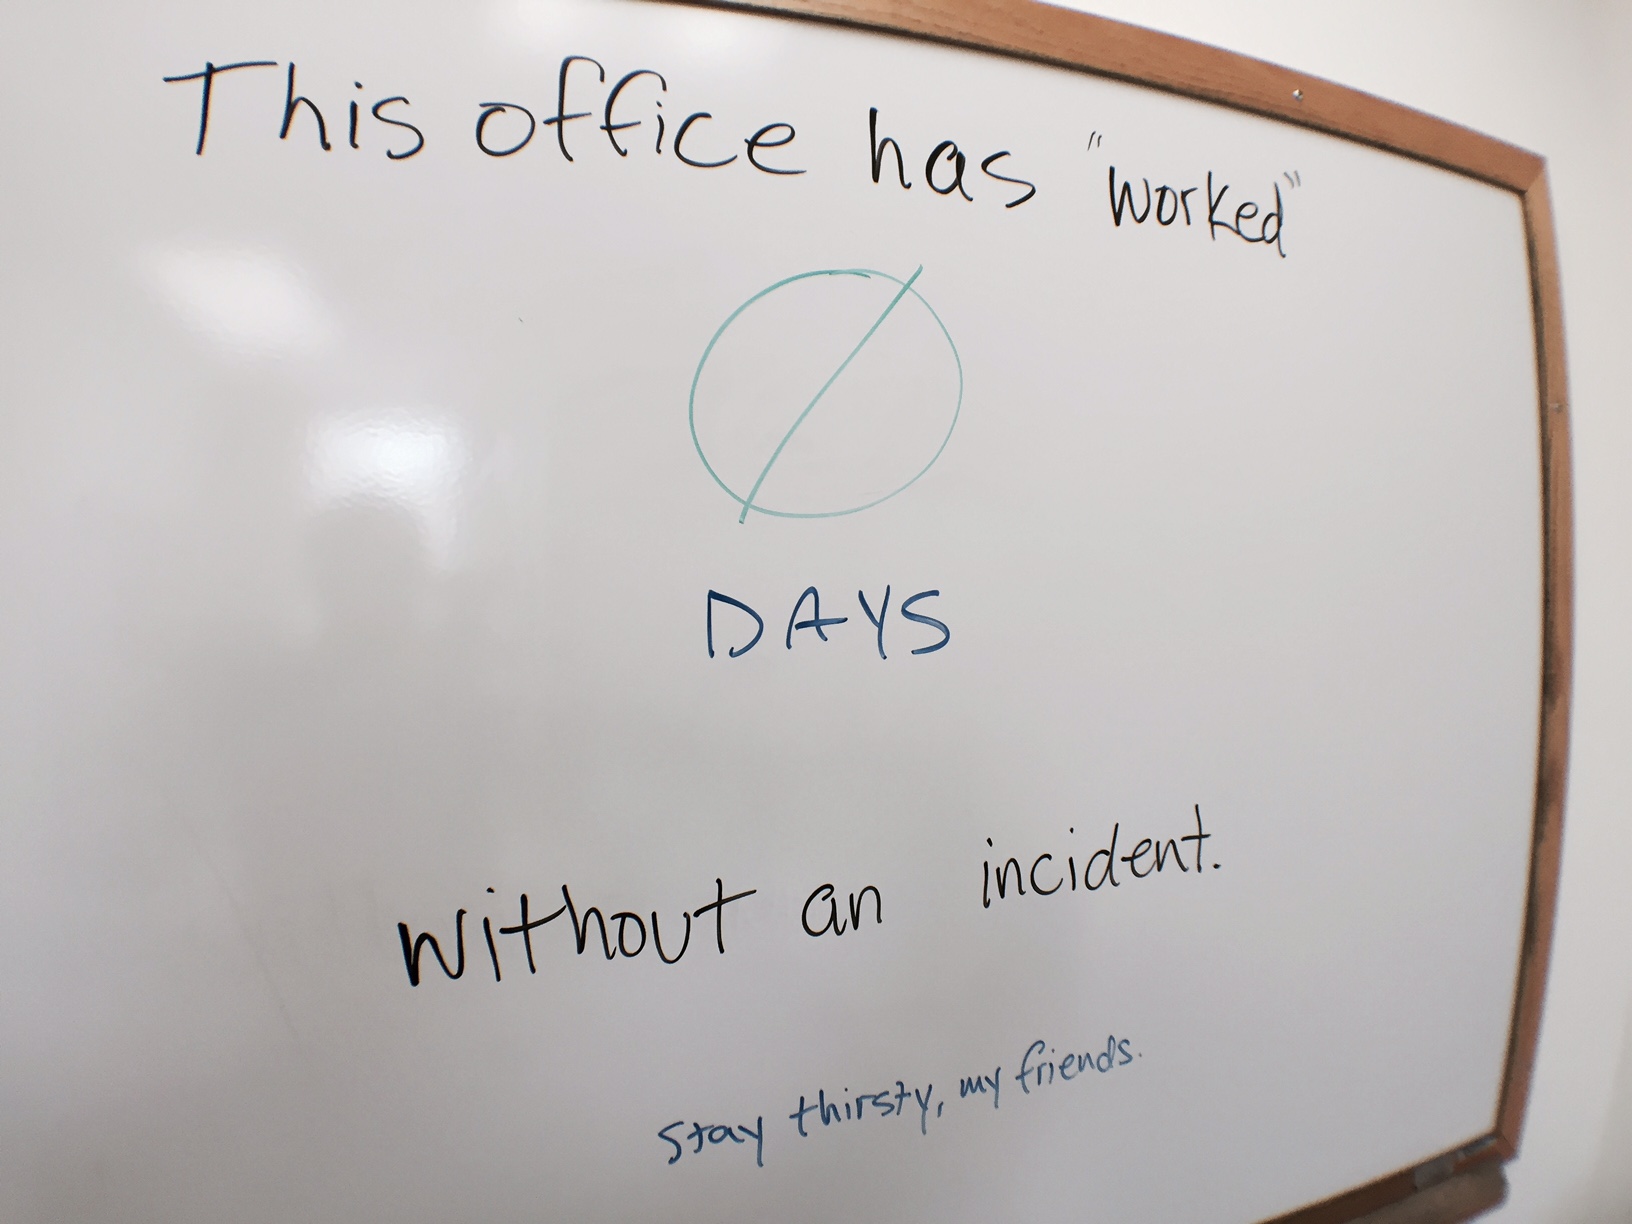 This office has "worked"
Ø
DAYS
without an incident.
stay thirsty, my friends.